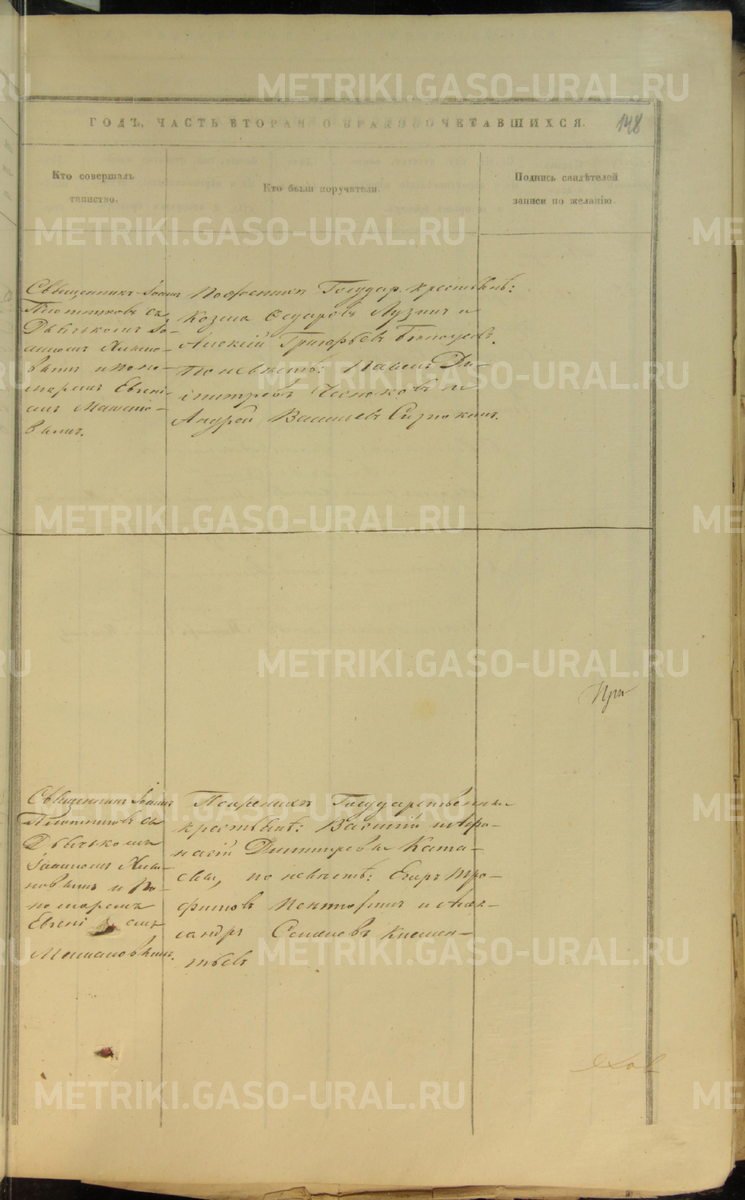 METRIKI.GASO-URAL.RU
ГОДЪ, ЧАСТЬ ВТОРАЯ, О БРАКОСОЧЕТАВШИХСЯ.
148
Кто совершалъ
таинство.
Кто были поручители.
Подпись свидѣтелей
записи по желанію.
Священникъ Іоаннъ
Плотниковъ съ
Дьячкомъ Іо-
анномъ
и поно-
маремъ Евгені-
емъ
По женихѣ Государ. крестьяне:
Козма Ѳедоровъ Лузинъ и
Алексѣй Григорьевъ
По невѣстѣ: Павелъ Ди-
митріевъ и
Андрей Васильевъ
При
Священникъ Іоаннъ
Плотниковъ съ
Дьячкомъ
Іоанномъ
и По-
номаремъ
Евгеніемъ
По женихѣ Государственные
крестьяне: Василій и Аѳа-
насій Димитріевы Ката-
евы, по невѣстѣ: Егоръ Тро-
фимовъ и Алек-
сандръ Семеновъ Клемен-
тьевъ